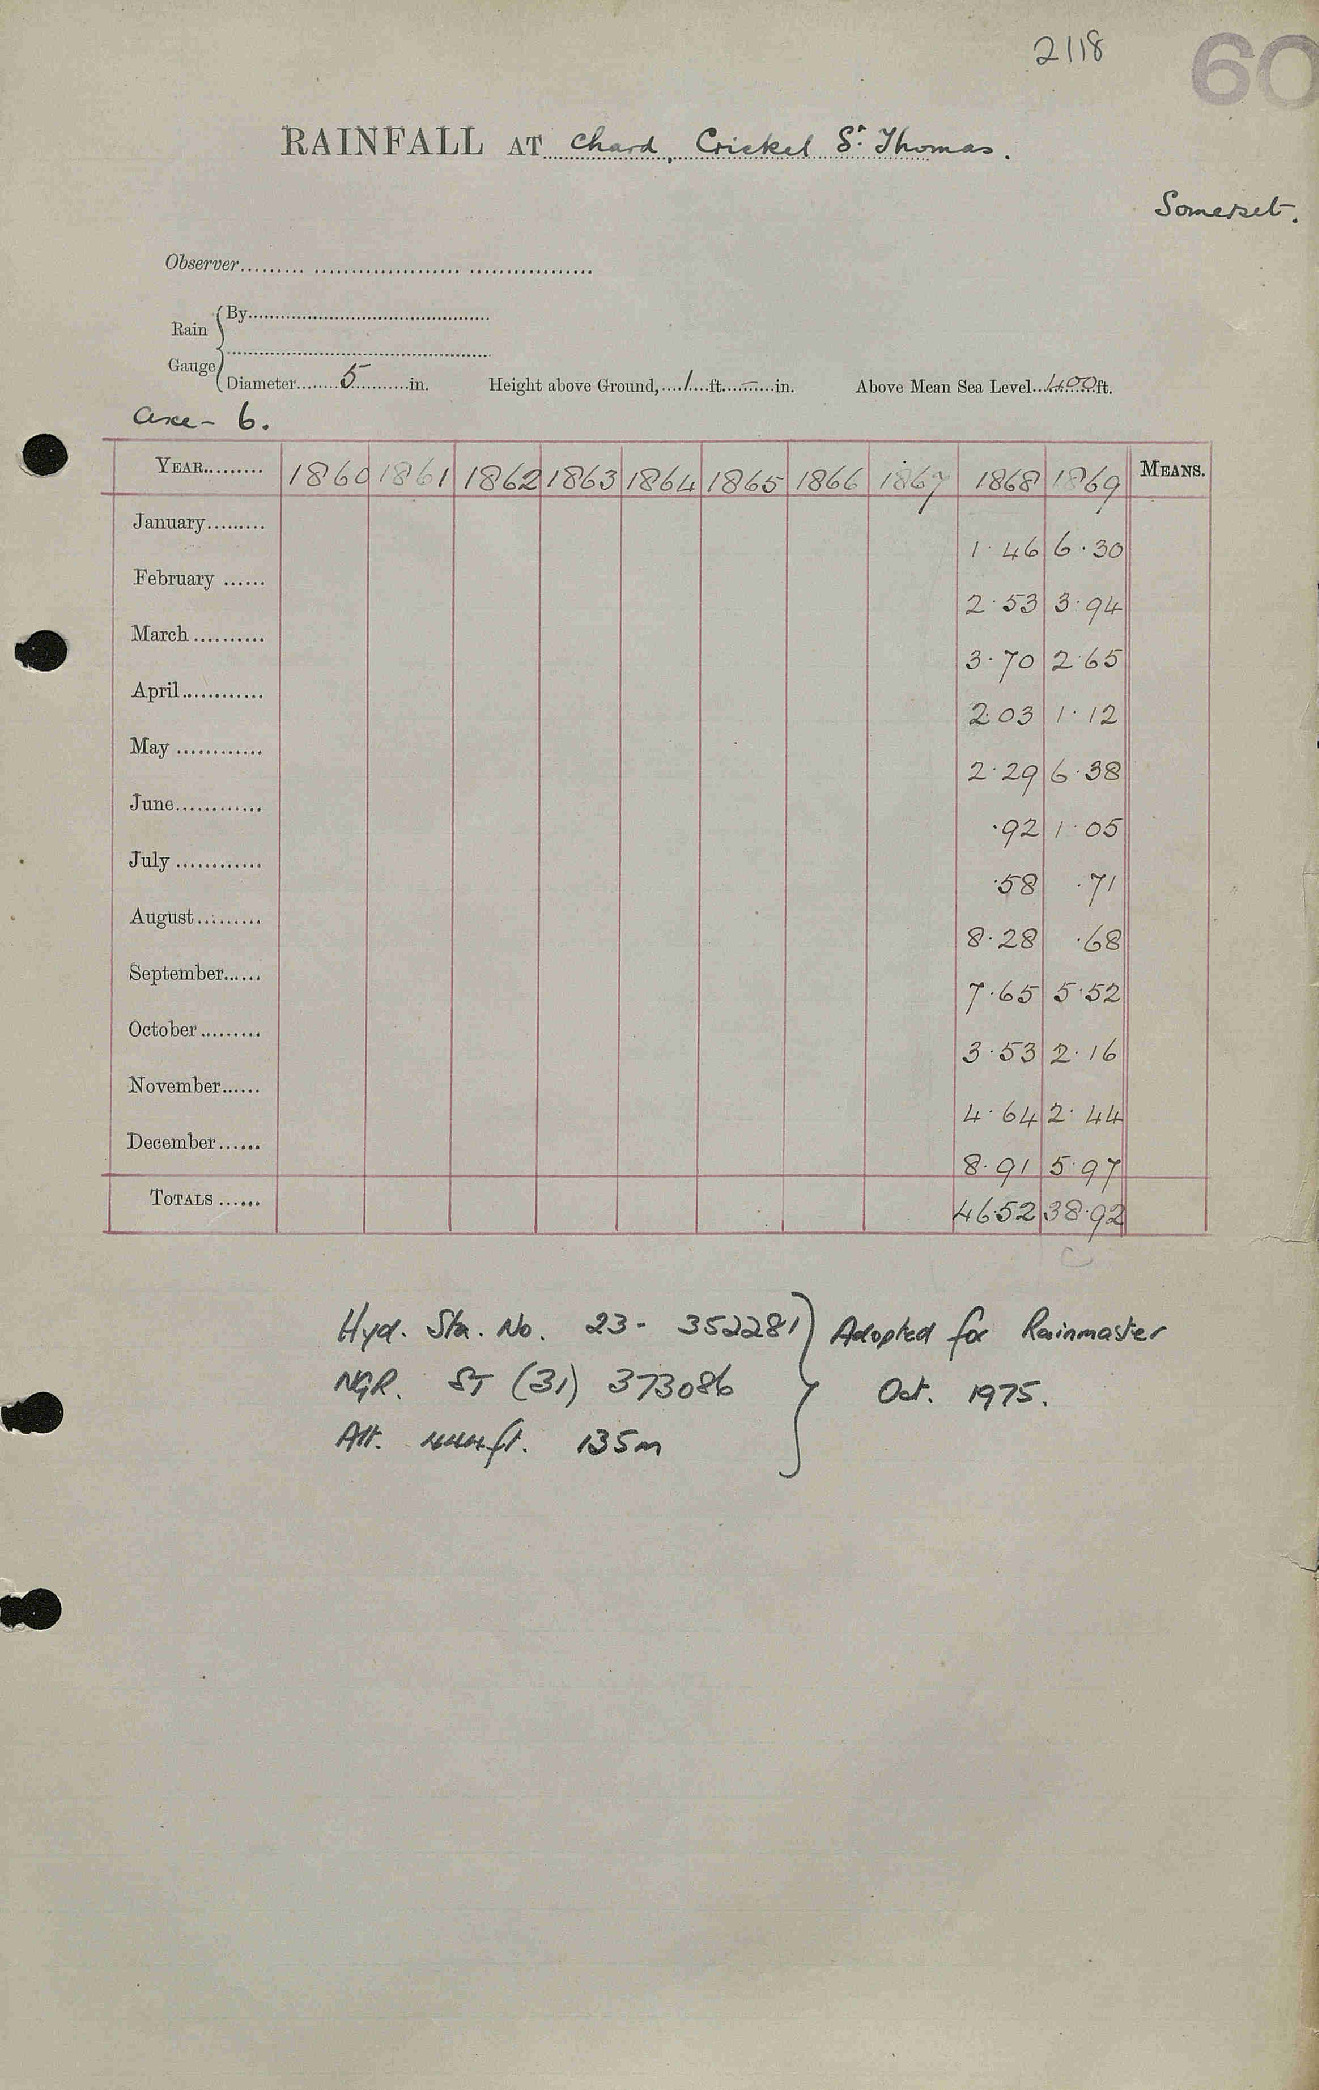 2118
60
RAINFALL AT Chard, Cricket St. Thomas.
Somerset.
Observer
Rain Gauge
By
Diameter 5 in. Height above Ground, 1 ft. - in. Above Mean Sea Level 400 ft.
Axe - 6.
YEAR 1860 1861 1862 1863 1864 1865 1866 1867 1868 1869 MEANS.
January 1.46 6.30
February 2.53 3.94
March 3.70 2.65
April 2.03 1.12
May 2.29 6.38
June .92 1.05
July .58 .71
August 8.28 .68
September 7.65 5.52
October 3.53 2.16
November 4.64 2.44
December 8.91 5.97
TOTALS 46.52 38.92
Hyd. Sta. No. 23 - 352281 Adopted for Rainmaster
NGR. ST (31) 373086 Oct. 1975.
Alt. 444ft. 135m